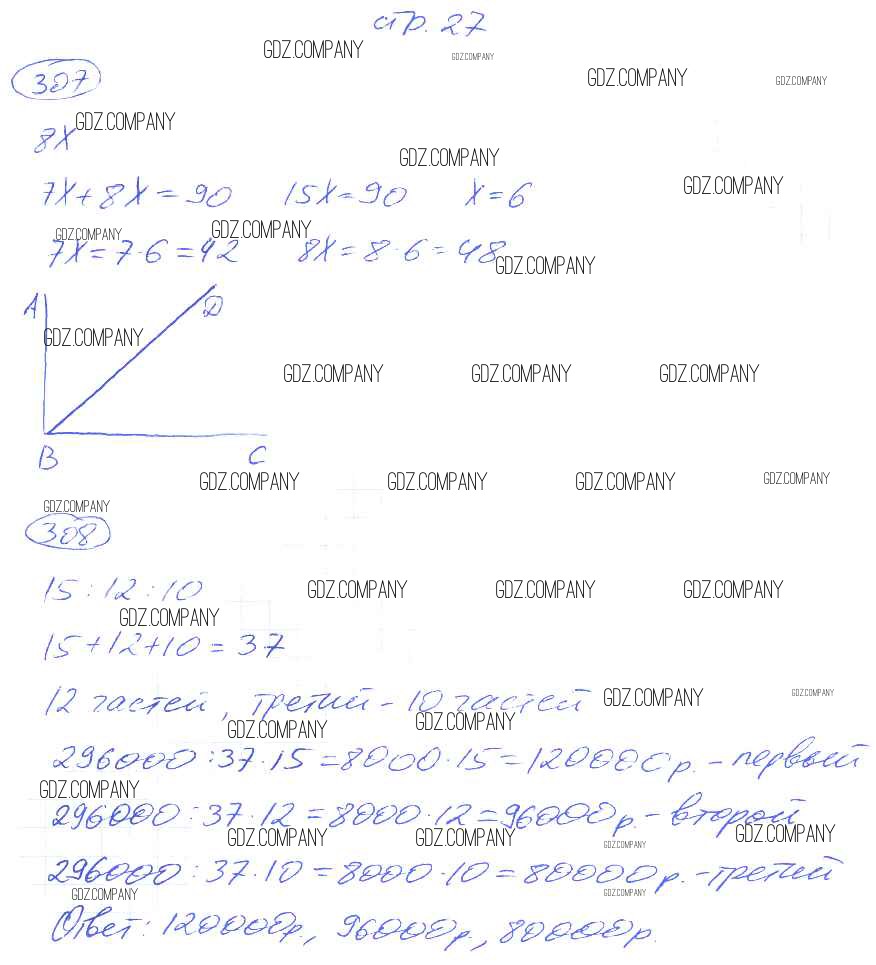 стр. 27
GDZ.COMPANY GDZ.COMPANY
307 GDZ.COMPANY GDZ.COMPANY
GDZ.COMPANY
8x
GDZ.COMPANY
7x+8x=90 15x=90 x=6 GDZ.COMPANY
GDZ.COMPANY GDZ.COMPANY
7x=7·6=42 8x=8·6=48
GDZ.COMPANY
A D
GDZ.COMPANY
GDZ.COMPANY GDZ.COMPANY GDZ.COMPANY
B C
GDZ.COMPANY GDZ.COMPANY GDZ.COMPANY GDZ.COMPANY
GDZ.COMPANY
308
15:12:10 GDZ.COMPANY GDZ.COMPANY GDZ.COMPANY
GDZ.COMPANY
15+12+10=37
12 частей, третий - 10 частей GDZ.COMPANY GDZ.COMPANY
GDZ.COMPANY GDZ.COMPANY
296000:37·15=8000·15=120000р. - первый
GDZ.COMPANY
296000:37·12=8000·12=96000р. - второй
GDZ.COMPANY GDZ.COMPANY GDZ.COMPANY GDZ.COMPANY
296000:37·10=8000·10=80000р. - третий
GDZ.COMPANY GDZ.COMPANY
Ответ: 120000р., 96000р., 80000р.